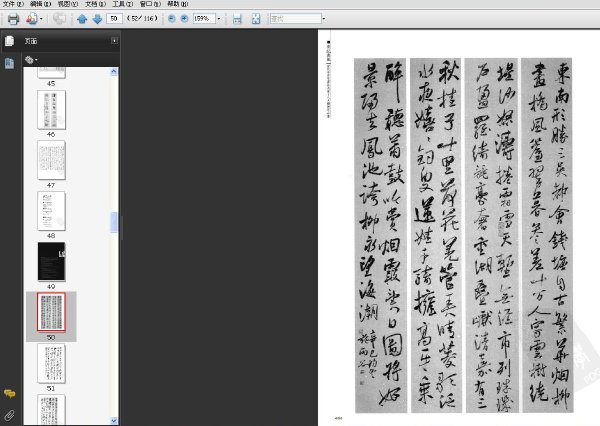 文件(F) 编辑(E) 视图(V) 文档(D) 工具(T) 窗口(W) 帮助(H)
50 (52 / 116) 159% 查找
页面
45
46
47
48
49
50
51
東南形勝三吳都會錢塘自古繁華烟柳
畫橋風簾翠幕參差十万人家雲樹繞
堤沙怒濤捲霜雪天塹無涯市列珠璣
户盈羅綺競豪奢重湖疊巘清嘉有三
秋桂子十里荷花羌管弄晴菱歌泛
夜嬉釣叟蓮娃千騎擁高牙乘
醉聽蕭鼓吟賞烟霞異日圖將好
景歸去鳳池誇柳永望海潮
辛巳